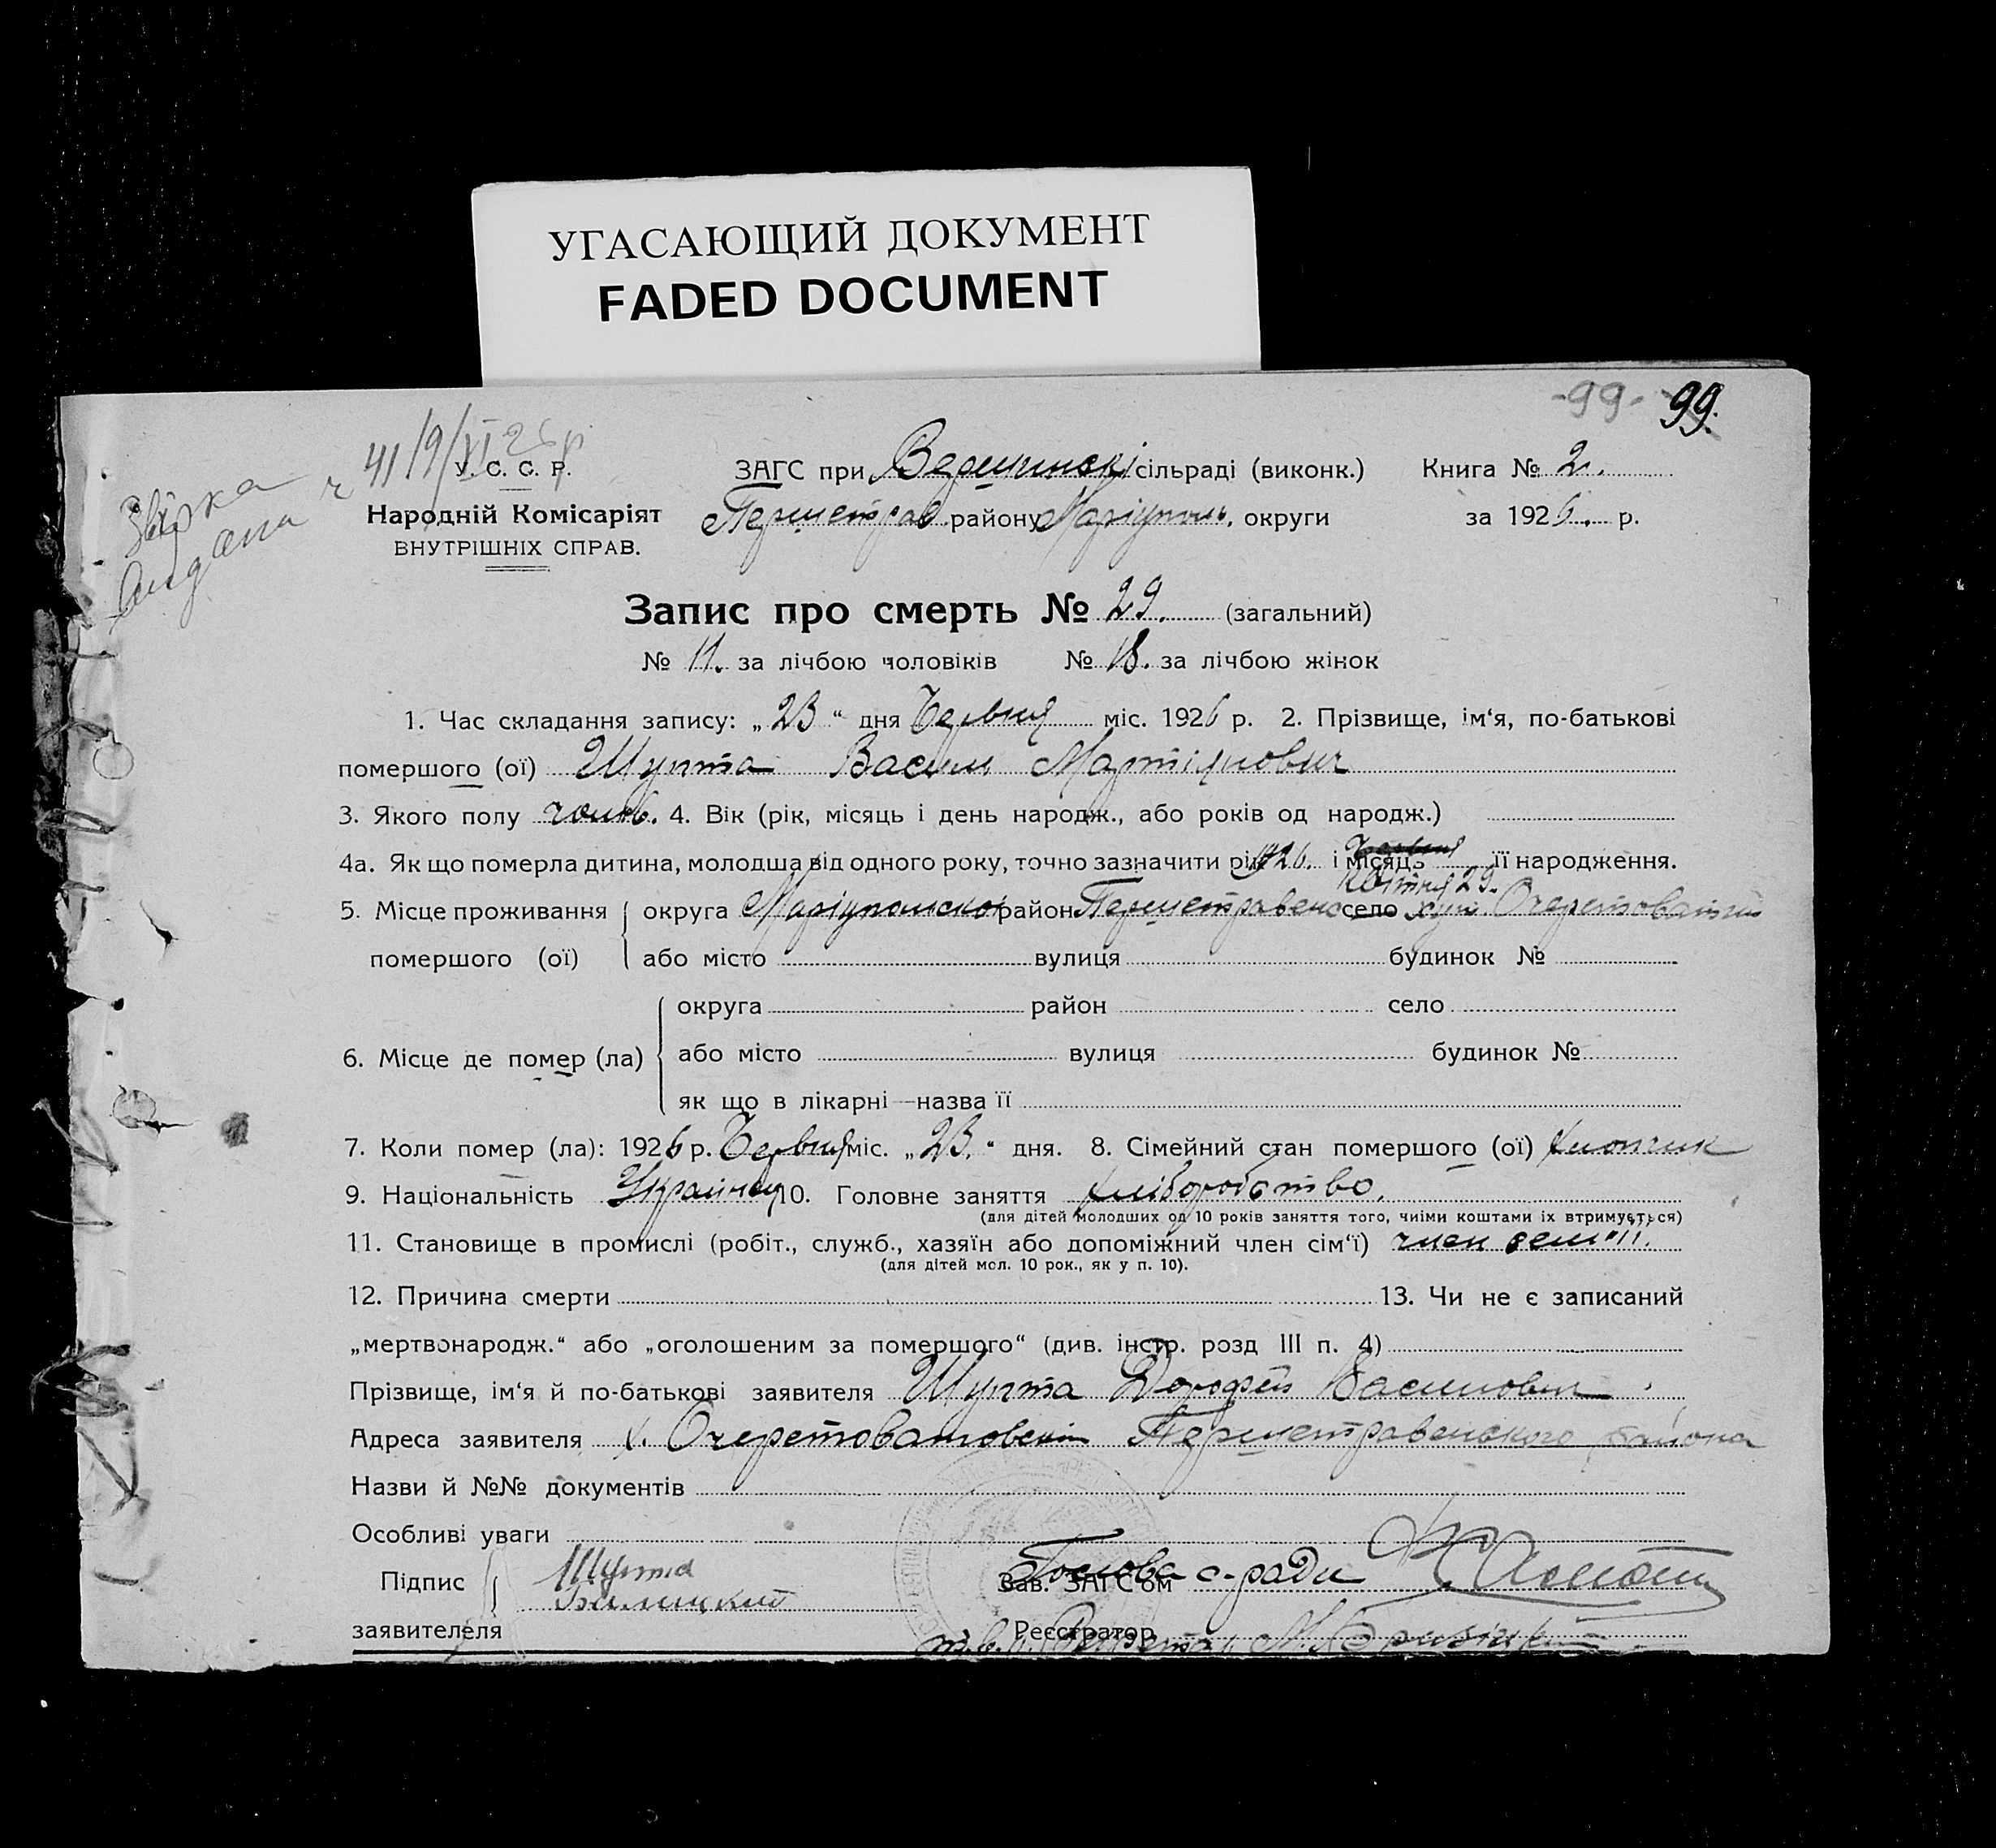 УГАСАЮЩИЙ ДОКУМЕНТ
FADED DOCUMENT
-99- 99.
У. С. С. Р. ЗАГС при сільраді (виконк.) Книга № 2.
Народній Комісаріят Першетрав. району Маріуполь. округи за 1926. р.
ВНУТРІШНІХ СПРАВ.
Запис про смерть № 29. (загальний)
№ 11. за лічбою чоловіків № 18. за лічбою жінок
1. Час складання запису: „23“ дня Червня міс. 1926 р. 2. Прізвище, ім‘я, по-батькові
помершого (ої) Шупта Василь Мартіянович
3. Якого полу чолов. 4. Вік (рік, місяць і день народж., або років од народж.)
4а. Як що померла дитина, молодша від одного року, точно зазначити рік 1926. і місяць Червня її народження.
Квітня 29.
5. Місце проживання округа район Першетравенс село хут.
помершого (ої) або місто вулиця будинок №
округа район село
6. Місце де помер (ла) або місто вулиця будинок №
як що в лікарні—назва її
7. Коли помер (ла): 1926 р. Червня міс. „23.“ дня. 8. Сімейний стан помершого (ої) хлопчик
9. Національність 10. Головне заняття хліборобство.
(для дітей молодших од 10 років заняття того, чиїми коштами їх втримується)
11. Становище в промислі (робіт., служб., хазяїн або допоміжний член сім‘ї) член семііі.
(для дітей мол. 10 рок., як у п. 10).
12. Причина смерти 13. Чи не є записаний
„мертвонародж.“ або „оголошеним за помершого“ (див. інстр. розд III п. 4)
Прізвище, ім‘я й по-батькові заявителя Шупта Дорофей Василович
Адреса заявителя х. Першетравенского района
Назви й №№ документів
Особливі уваги
Підпис Шупта Зав. ЗАГС‘ом Голова с-ради
Билицкий
заявителеля Реєстратор